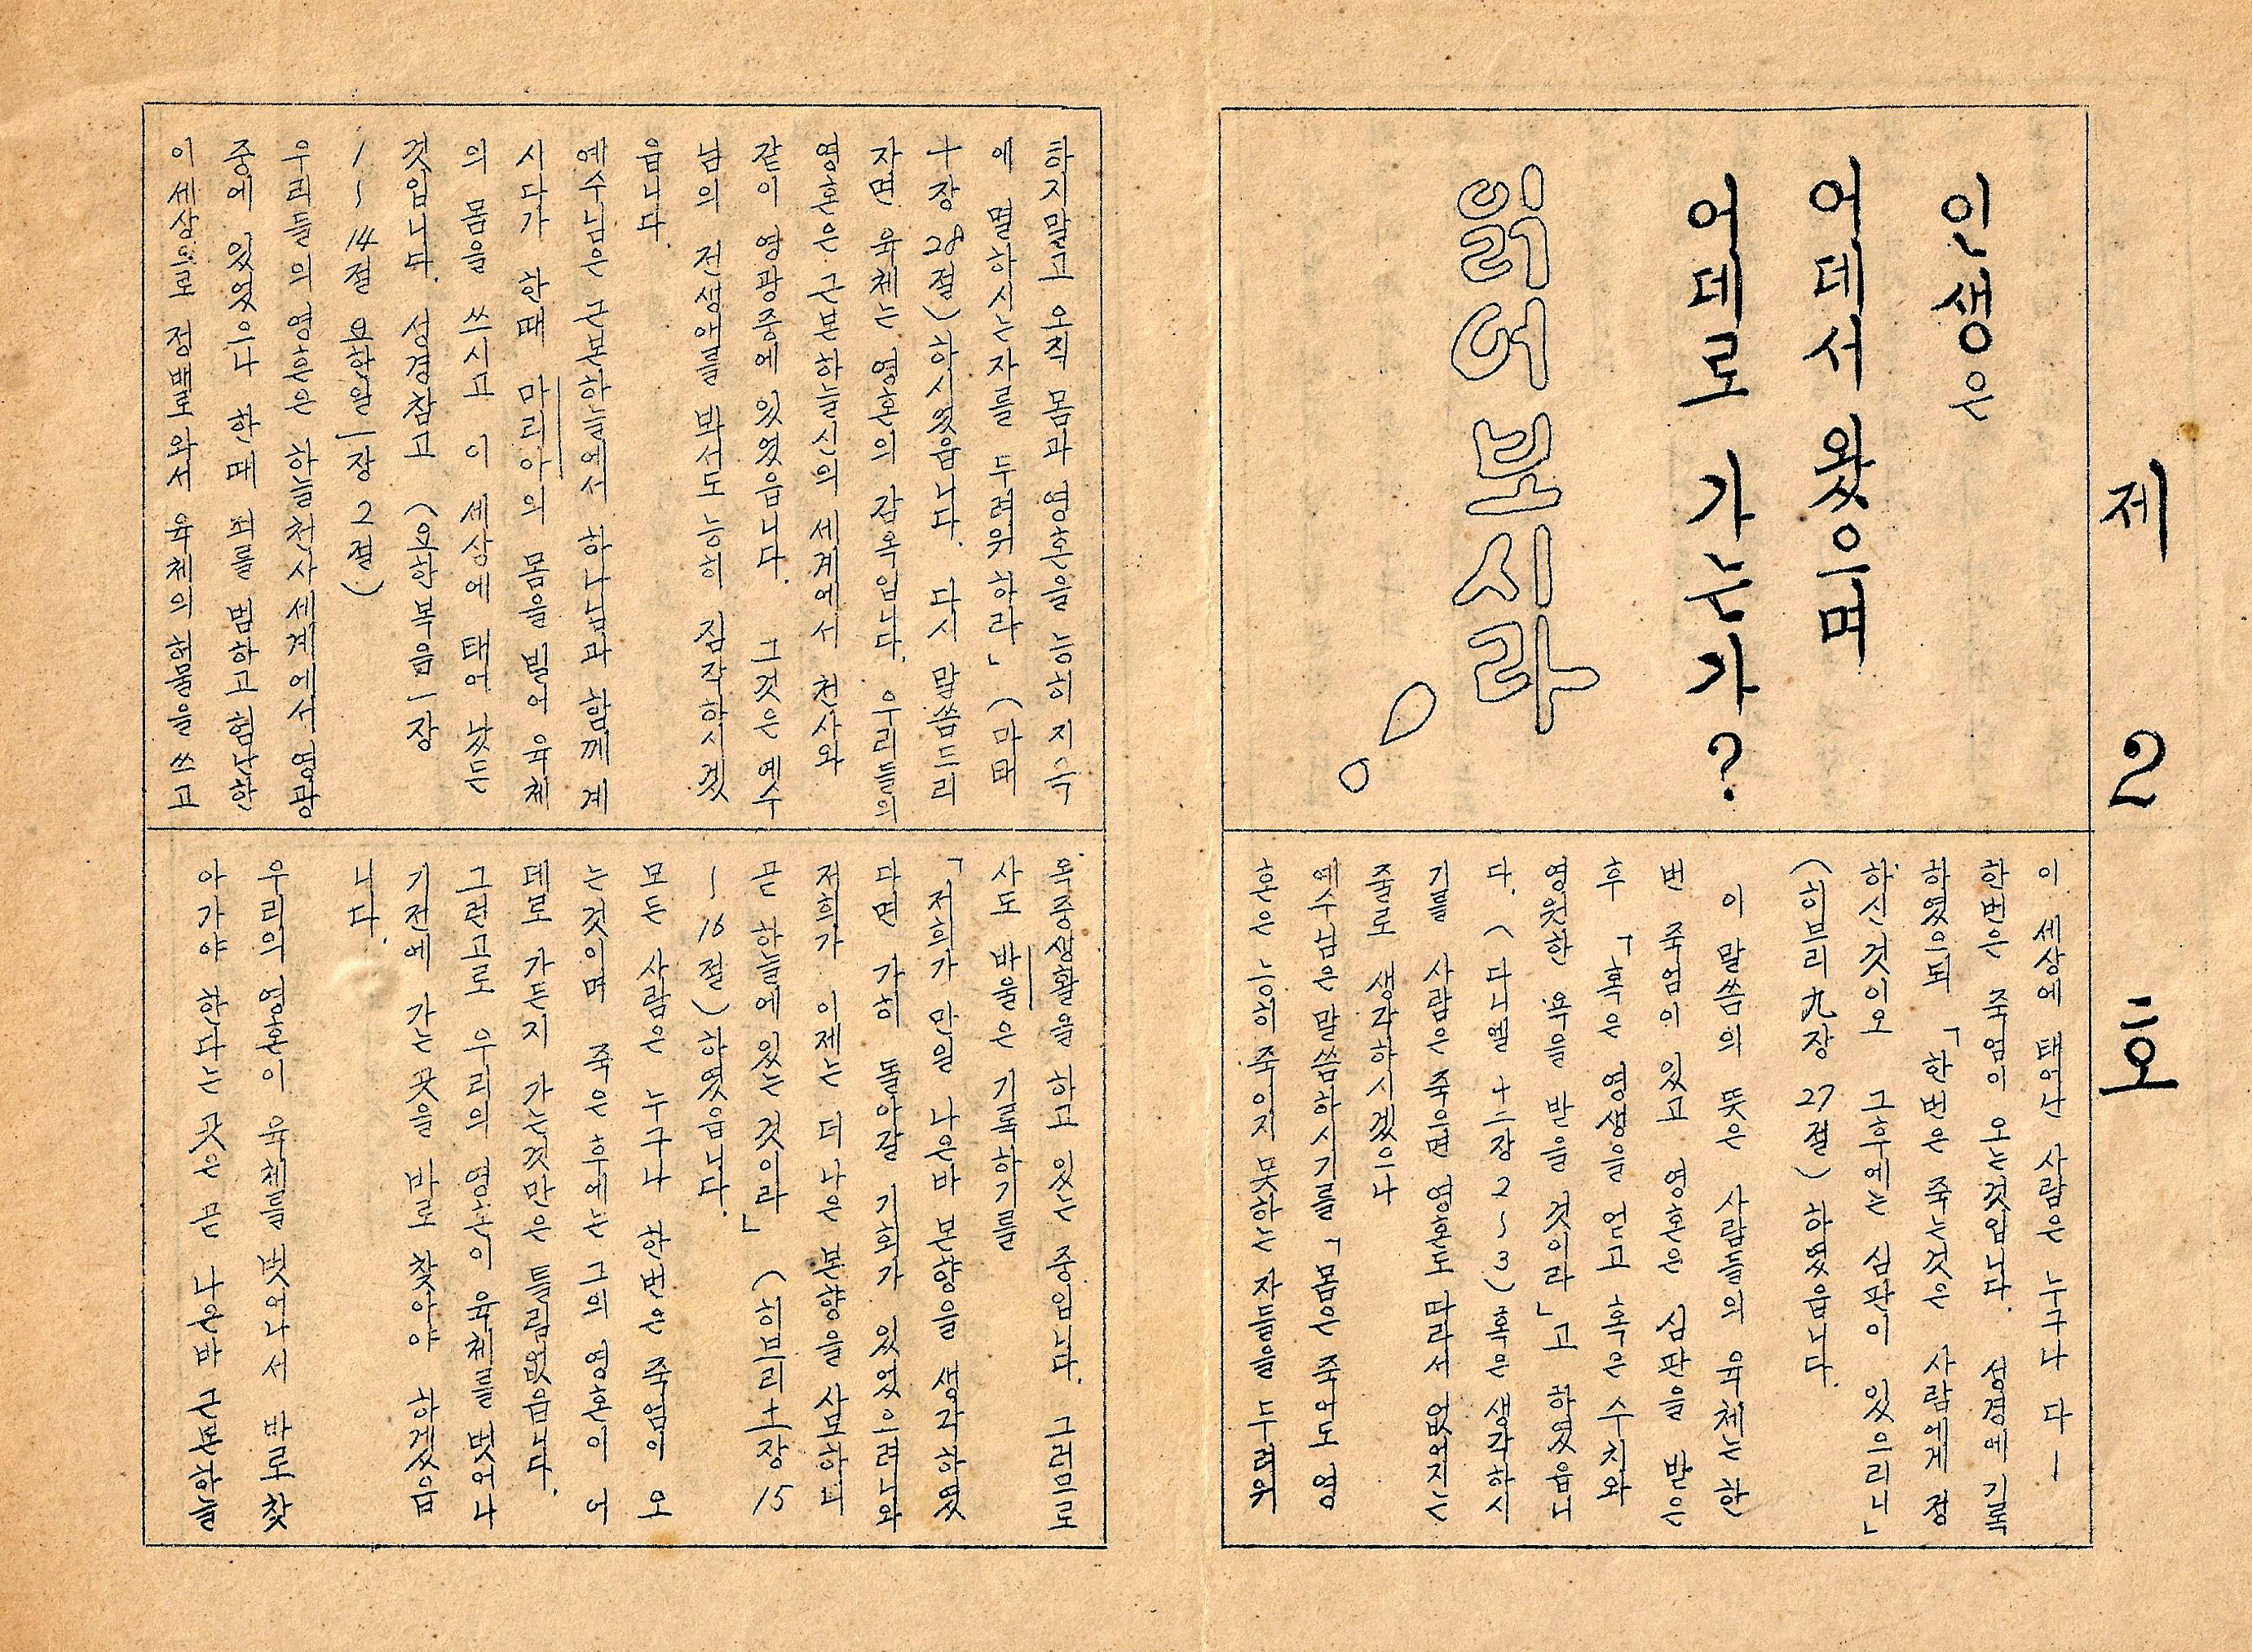 제 2 호
인생은
어데서 왔으며
어데로 가는가?
읽어 보시라!
이 세상에 태어난 사람은 누구나 다ㅣ
한번은 죽엄이 오는것입니다. 성경에 기록
하였으되 「한번은 죽는것은 사람에게 정
하신것이오 그후에는 심판이 있으리니」
(히브리九장 27절) 하였읍니다.
이 말씀의 뜻은 사람들의 육체는 한
번 죽엄이 있고 영혼은 심판을 받은
후 「혹은 영생을 얻고 혹은 수치와
영원한 욕을 받을 것이라」고 하였읍니
다. (다니엘 十二장 2~3) 혹은 생각하시
기를 사람은 죽으면 영혼도 따라서 없어지는
줄로 생각하시겠으나
예수님은 말씀하시기를 「몸은 죽여도 영
혼은 능히 죽이지 못하는 자들을 두려워
하지말고 오직 몸과 영혼을 능히 지옥
에 멸하시는자를 두려워하라」 (마태
十장 28절) 하시었읍니다. 다시 말씀드리
자면 육체는 영혼의 감옥입니다. 우리들의
영혼은 근본하늘신의 세계에서 천사와
같이 영광중에 있었읍니다. 그것은 예수
님의 전생애를 봐서도 능히 짐작하시겠
읍니다.
예수님은 근본하늘에서 하나님과 함께 계
시다가 한때 마리아의 몸을 빌어 육체
의 몸을 쓰시고 이 세상에 태어 났든
것입니다. 성경참고 (요한복음一장
1~14절 요한일一장 2절)
우리들의 영혼은 하늘천사세계에서 영광
중에 있었으나 한때 죄를 범하고 험난한
이세상으로 정배로와서 육체의 허물을 쓰고
옥중생활을 하고 있는 중입니다. 그러므로
사도 바울은 기록하기를
「저희가 만일 나온바 본향을 생각하였
다면 가히 돌아갈 기회가 있었으려니와
저희가 이제는 더 나은 본향을 사모하니
곧 하늘에 있는 것이라」 (히브리十一장 15
~16절) 하였읍니다.
모든 사람은 누구나 한번은 죽엄이 오
는것이며 죽은 후에는 그의 영혼이 어
데로 가든지 가는것만은 틀림없읍니다.
그런고로 우리의 영혼이 육체를 벗어나
기전에 가는 곳을 바로 찾아야 하겠읍
니다.
우리의 영혼이 육체를 벗어나서 바로 찾
아가야 한다는 곳은 곧 나온바 근본하늘